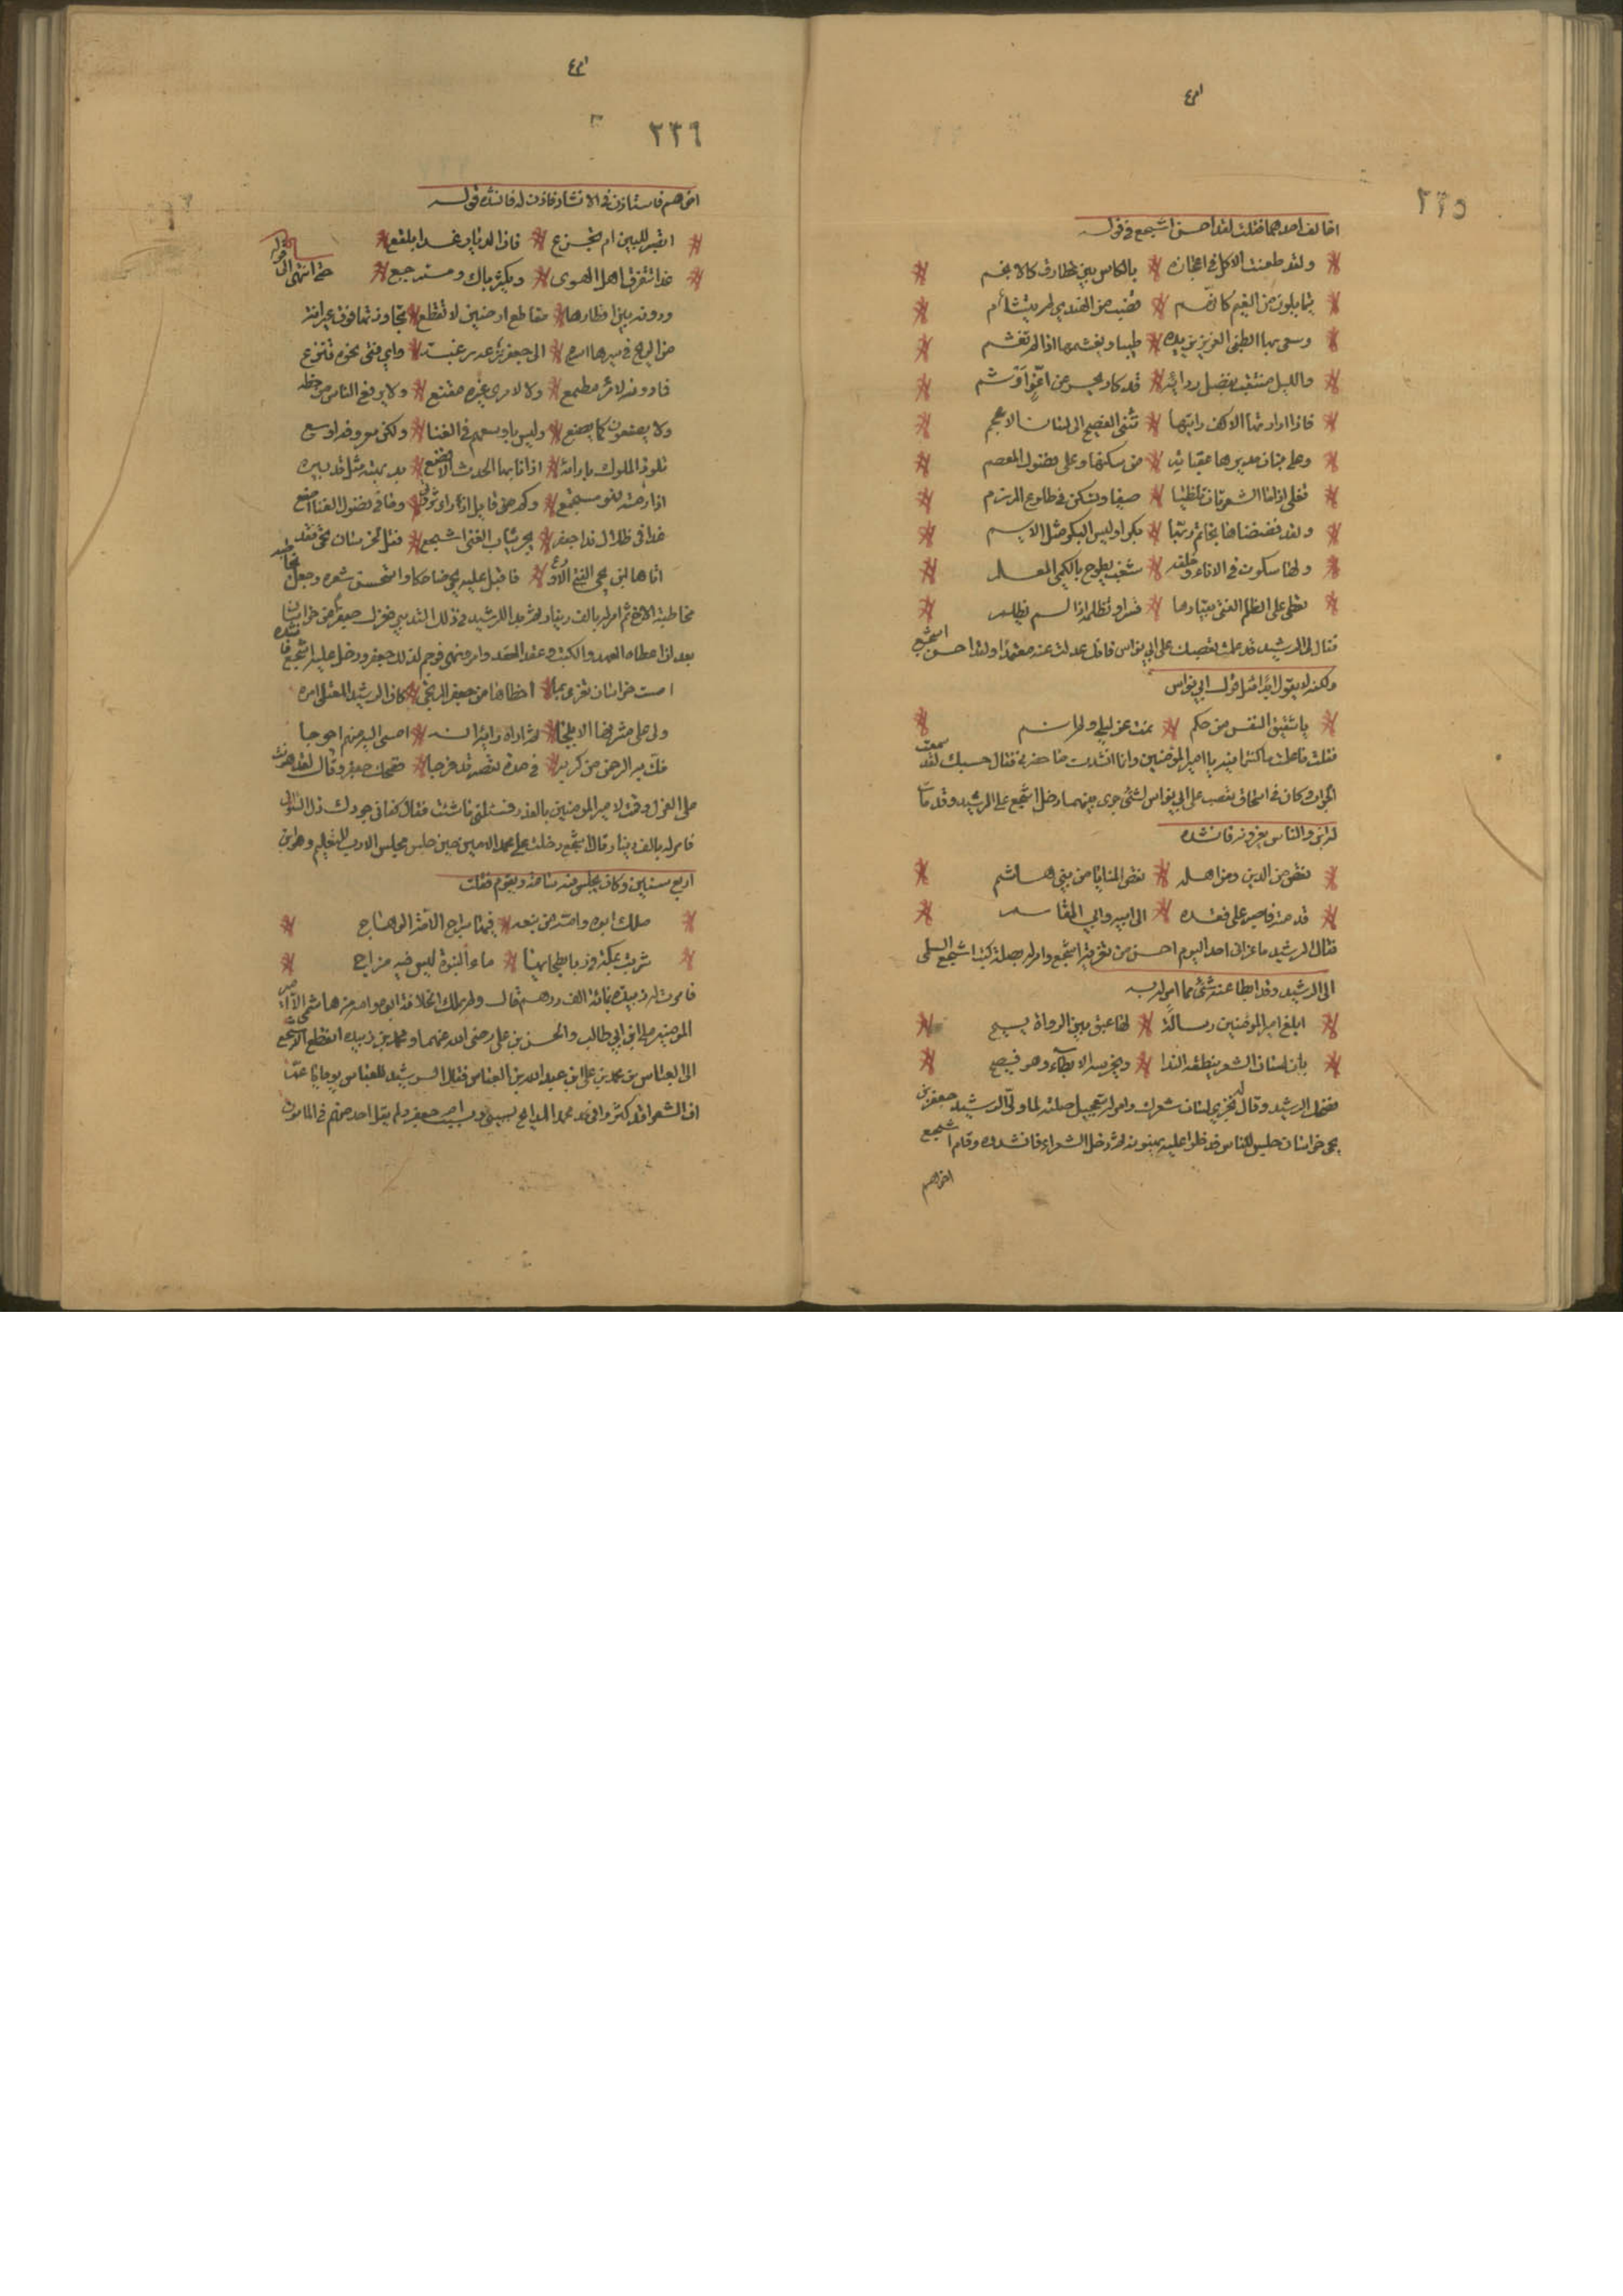 ٢٣٥
اخالف احدهما فقلت لقد احسن اشجع في قوله
ولقد طعنت الليل في اعجازه * بالكاس بين غطارف كالانجم
يتمايلون من النعيم كانهم * قضب من الهندي لم يتثلم
وسعى بها الظبي الغرير يزيده * طيبا ويغشمها اذا لم تغشم
والليل منتقب بفضل ردائه * قد كاد يحسر عن اغر ارثم
فاذا ادارتها الاكف رايتها * تثني الفصيح الى لسان الاعجم
وعلى بنان مديرها عقيانه * من سكبها وعلى فضول المعصم
تغلي اذا ما الشعريان تلظيا * صيفا وتسكن في طلوع المرزم
ولقد فضضناها بخاتم ربها * بكرا وليس البكر مثل الايم
ولها سكون في الاناء وخلفه * شغب يطوح بالكمي المعلم
تعطي على الظلم الفتى بقيادها * قسرا وتظلمه اذا لم يظلم
فقال لي الرشيد قد علمت تعصبك على ابي نواس فانك عدلت عنه متعمدا ولقد احسن اشجع
ولكنه لا يقول ابدا مثل قول ابي نواس
يا شقيق النفس من حكم * نمت عن ليلي ولم انم
فقلت ما علمت ما كنت فيه يا امير المؤمنين وانا انشدت ما حضرني فقال حسبك لقد سمعت
الجواب وكان في اسحاق تعصب على ابي نواس لشئ جرى بينهما دخل اشجع على الرشيد وقد مات
له ابن والناس يعزونه فانشده
نقص من الدين ومن اهله * نقص المنايا من بني هاشم
قدمته فاصبر على فقده * الى ابيه وابي القاسم
فقال الرشيد ما عزاني احد اليوم احسن من تعزية اشجع وامر له بصلة كتب اشجع السلمي
الى الرشيد وقد ابطا عنه شئ مما امر له به
ابلغ امير المؤمنين رسالة * لها عنق بين الرواة فسيح
بان لسان الشعر ينطقه الندا * ويخرسه الابطاء وهو فصيح
فضحك الرشيد وقال له لن يخرس لسان شعرك وامر بتعجيل صلته لما ولى الرشيد جعفر بن
يحيى خراسان جلس للناس فدخلوا عليه يهنونه ثم دخل الشعراء فانشدوه وقام اشجع
اخراهم
٢٣٦
اخراهم فاستاذن في الانشاد فاذن له فانشده قوله
اتصبر للبين ام تجزع * فان الديار غدا بلقع
غدا يتفرق اهل الهوى * ويكثر باك ومسترجع * حتى انتهى الى قوله
ودونه بين اقطارها * مقاطع ارضين لا تقطع * تجاوزتها فوق عيرانة
من الريح في سيرها اسرع * الى جعفر نزعت رغبة * واي فتى نحوه تنزع
فما دونه لامرء مطمع * ولا لامرى غيره مقنع * ولا يرفع الناس من حطه
ولا يصنعون كما يصنع * وليس باوسعهم في الغنا * ولكن معروفه اوسع
تلوذ الملوك بارائه * اذا نابها الحدث الافظع * بديهته مثل تدبيره
اذا رمته فهو مستجمع * وكم من قايل اذ راى ثروتي * وما في فضول الغنا اصنع
غدا في ظلال ندا جعفر * يجر ثياب الغنى اشجع * فقل لخراسان تحيى فقد
اتاها ابن يحيى الفتى الاروع * فاقبل عليه يحيى ضاحكا واستحسن شعره وجعل
مخاطبة الاخ ثم امر له بالف دينار ثم بدا للرشيد في ذلك التدبير فعزل جعفرا من خراسان
بعد ان اعطاه العهد والكتب وعقد العقد وامر ونهى فوجم لذلك جعفر ودخل عليه اشجع فانشده
امست خراسان تعزى بما * اخطاها من جعفر المرتجى * كان الرشيد المعتلى امره
ولى على مشرقها الابلجا * ثم اراه رايه انه * امسى اليه منهم احوجا
فكم به الرحمن من كربة * في مدة تقصر قد فرجا * فضحك جعفر وقال لقد هونت
على العزل وقمت لامير المؤمنين بالعذر فسلني ما شئت فقال كفاني جودك ذل السؤال
فامر له بالف دينار وقال اشجع دخلت على محمد الامين حين جلس مجلس الادب للتعليم وهو ابن
اربع سنين وكان يجلس فيه ساعة ويقوم فقلت
ملك ابوه وامه من نبعة * فيها سراج الامة الوهاج
شربت بمكة في ربا بطحائها * ماء النبوة ليس فيه مزاج
فامرت له زبيدة بمائة الف درهم قال ولم يملك الخلافة ابوه وامه من هاشم الا امير
المؤمنين علي ابن ابي طالب والحسن بن علي رضي الله عنهما ومحمد بن زبيدة انقطع اشجع
الى العباس بن محمد بن علي ابن عبد الله بن العباس فقال الرشيد للعباس يوما يا عم
ان الشعراء قد اكثروا في محمد المدايح بسببي وبسبب ام جعفر ولم يقل احد منهم في المامون